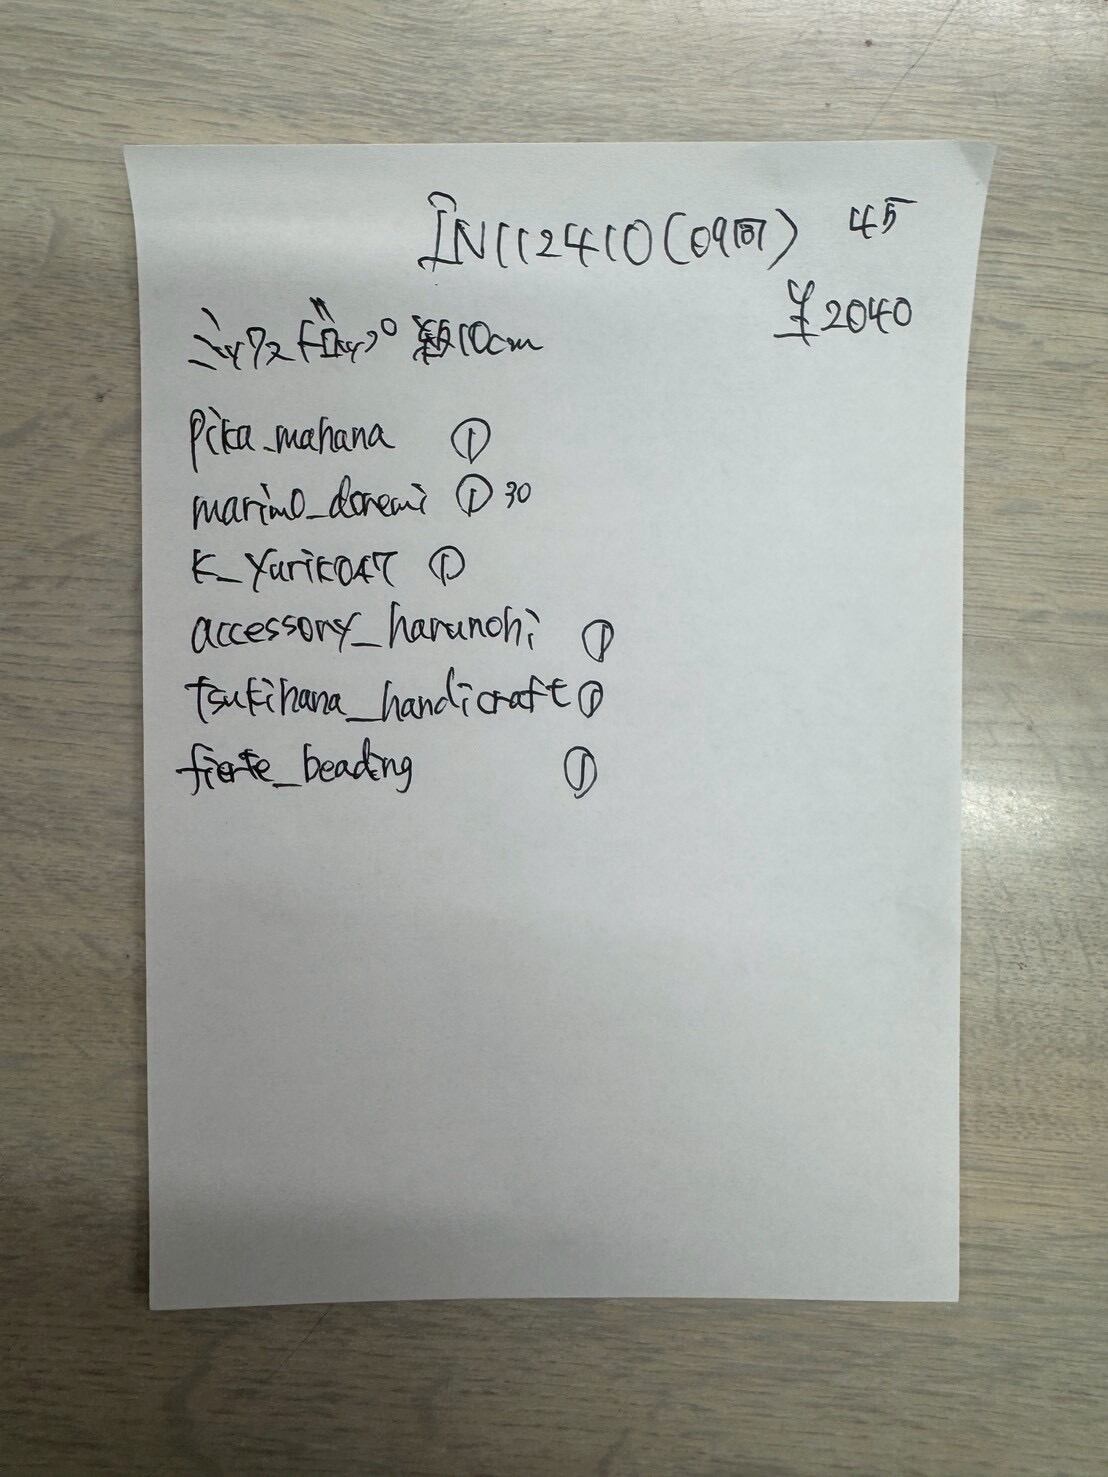 IN112410(09間) 45
¥2040
ミックスドロップ 約10cm
pika_mahana ①
marimo_doremi ① 30
K_yuriko47 ①
accessory_harunohi ①
tsukihana_handicraft ①
fierte_beading ①